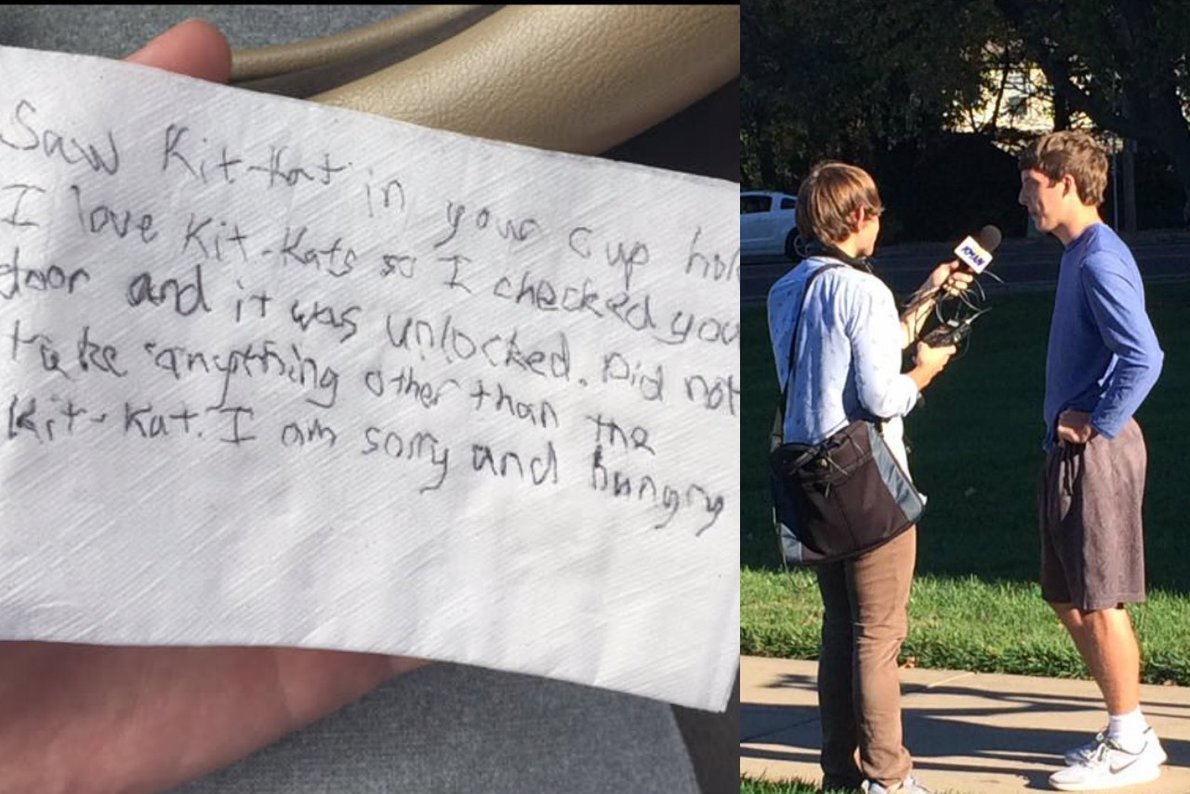 Saw Kit-Kat in your cup hol
I love Kit-Kats so I checked you
door and it was unlocked. Did not
take anything other than the
Kit-Kat. I am sorry and hungry
KMAN